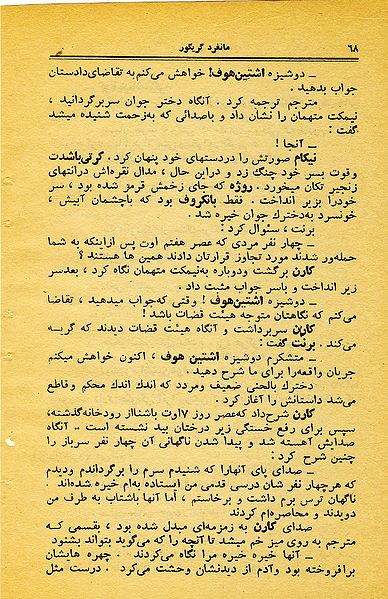 ۶۸
مانفرد گریگور
ــ دوشیزه اشتین‌هوف! خواهش می‌کنم به تقاضای‌دادستان
جواب بدهید .
مترجم ترجمه کرد . آنگاه دختر جوان سربرگردانید ،
نیمکت متهمان را نشان داد و باصدائی که به‌زحمت شنیده میشد
گفت :
ــ آنجا !
نیکام صورتش را دردستهای خود پنهان کرد . گرتی‌باشدت
وقوت بسر خود چنگ زد و دراین حال ، مدال نقره‌اش درانتهای
زنجیر تکان میخورد . روژه که جای زخمش قرمز شده بود ، سر
خودرا بزیر انداخت . فقط بانکروف بود که باچشمان آبیش ،
خونسرد به‌دخترك جوان خیره شد .
برنت ، سئوال کرد :
ــ چهار نفر مردی که عصر هفتم اوت پس ازاینکه به شما
حمله‌ور شدند مورد تجاوز قرارتان دادند همین ها هستند ؟
کارن برگشت ودوباره به‌نیمکت متهمان نگاه کرد ، بعدسر
زیر انداخت و باسر جواب مثبت داد .
ــ دوشیزه اشتین‌هوف ! وقتی که‌جواب میدهید ، تقاضا
می‌کنم که نگاهتان متوجه هیئت قضات باشد !
کارن سربرداشت و آنگاه هیئت قضات دیدند که گریه
می‌کند . برنت گفت :
ــ متشکرم دوشیزه اشتین هوف ، اکنون خواهش میکنم
جریان واقعه‌را برای ما شرح دهید .
دخترك بالحنی ضعیف ومردد که اندك اندك محکم وقاطع
می‌شد داستانش را آغاز کرد .
کارن شرح‌داد که‌عصر روز ۷اوت باشناز رودخانه‌گذشته،
سپس برای رفع خستگی زیر درختان بید نشسته است .. آنگاه
صدایش آهسته شد و پیدا شدن ناگهانی آن چهار نفر سرباز را
چنین شرح کرد :
ــ صدای پای آنهارا که شنیدم سرم را برگرداندم ودیدم
که هرچهار نفر شان درسی قدمی من ایستاده به‌ام خیره شده‌اند .
ناگهان ترس برم داشت و برخاستم ، اما آنها باشتاب به طرف من
دویدند و محاصره‌ام کردند
صدای کارن به زمزمه‌ای مبدل شده بود ، بقسمی که
مترجم به روی میز خم میشد تا آنچه را که می‌گوید بتواند بشنود
ــ آنها خیره خیره مرا نگاه می‌کردند . چهره هایشان
برافروخته بود وآدم از دیدنشان وحشت می‌کرد . درست مثل